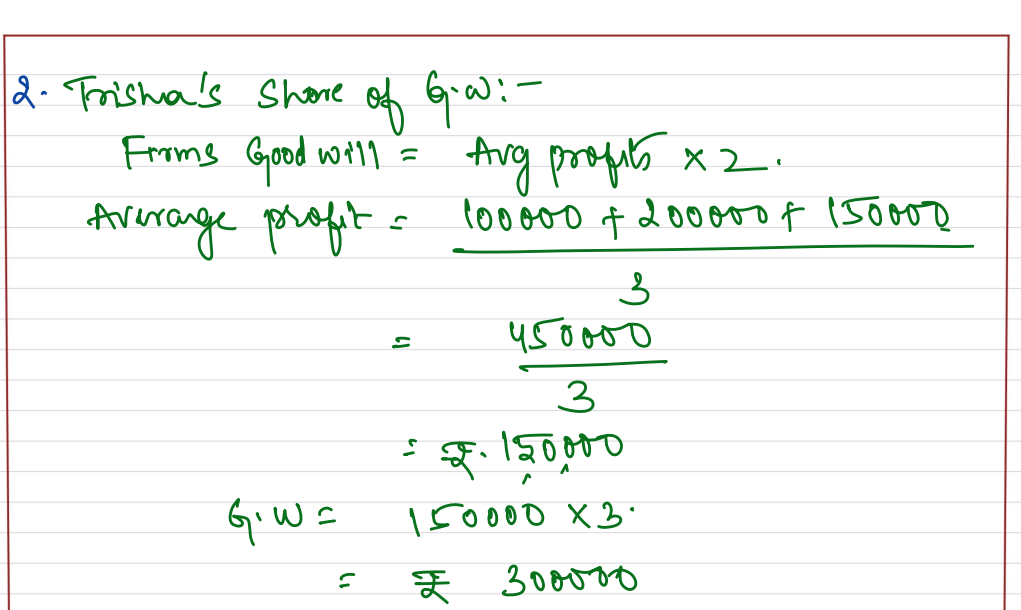 2. Trisha's Share of G.W:-
Firms Goodwill = Avg profits × 2.
Average profit = 100000 + 200000 + 150000
3
= 450000
3
= ₹. 150000
G.W = 150000 × 3.
= ₹ 300000